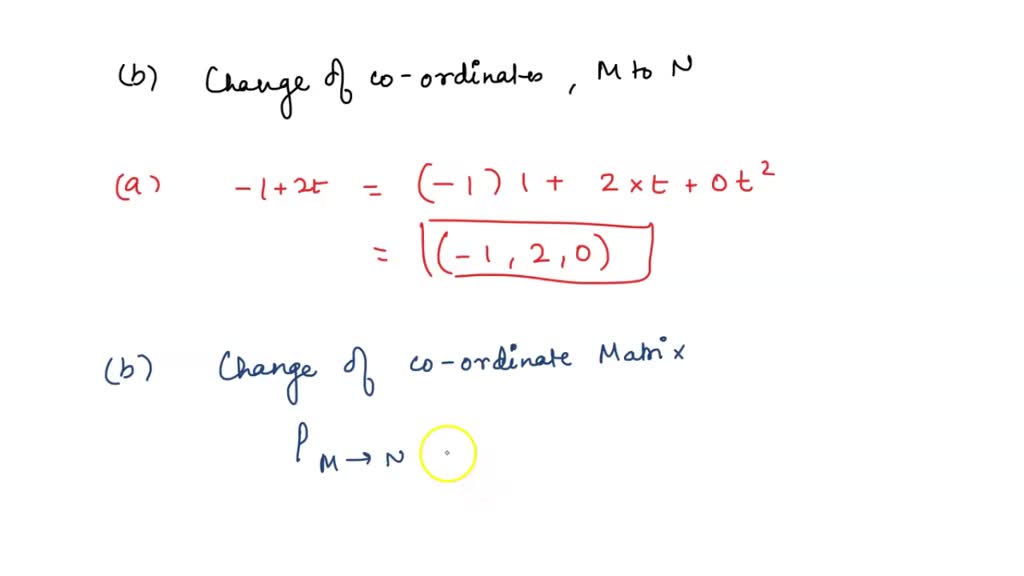 (b) Change of co-ordinates, M to N
(a) -1+2t = (-1) 1 + 2×t + 0t²
= (-1, 2, 0)
(b) Change of co-ordinate Matrix
P M→N